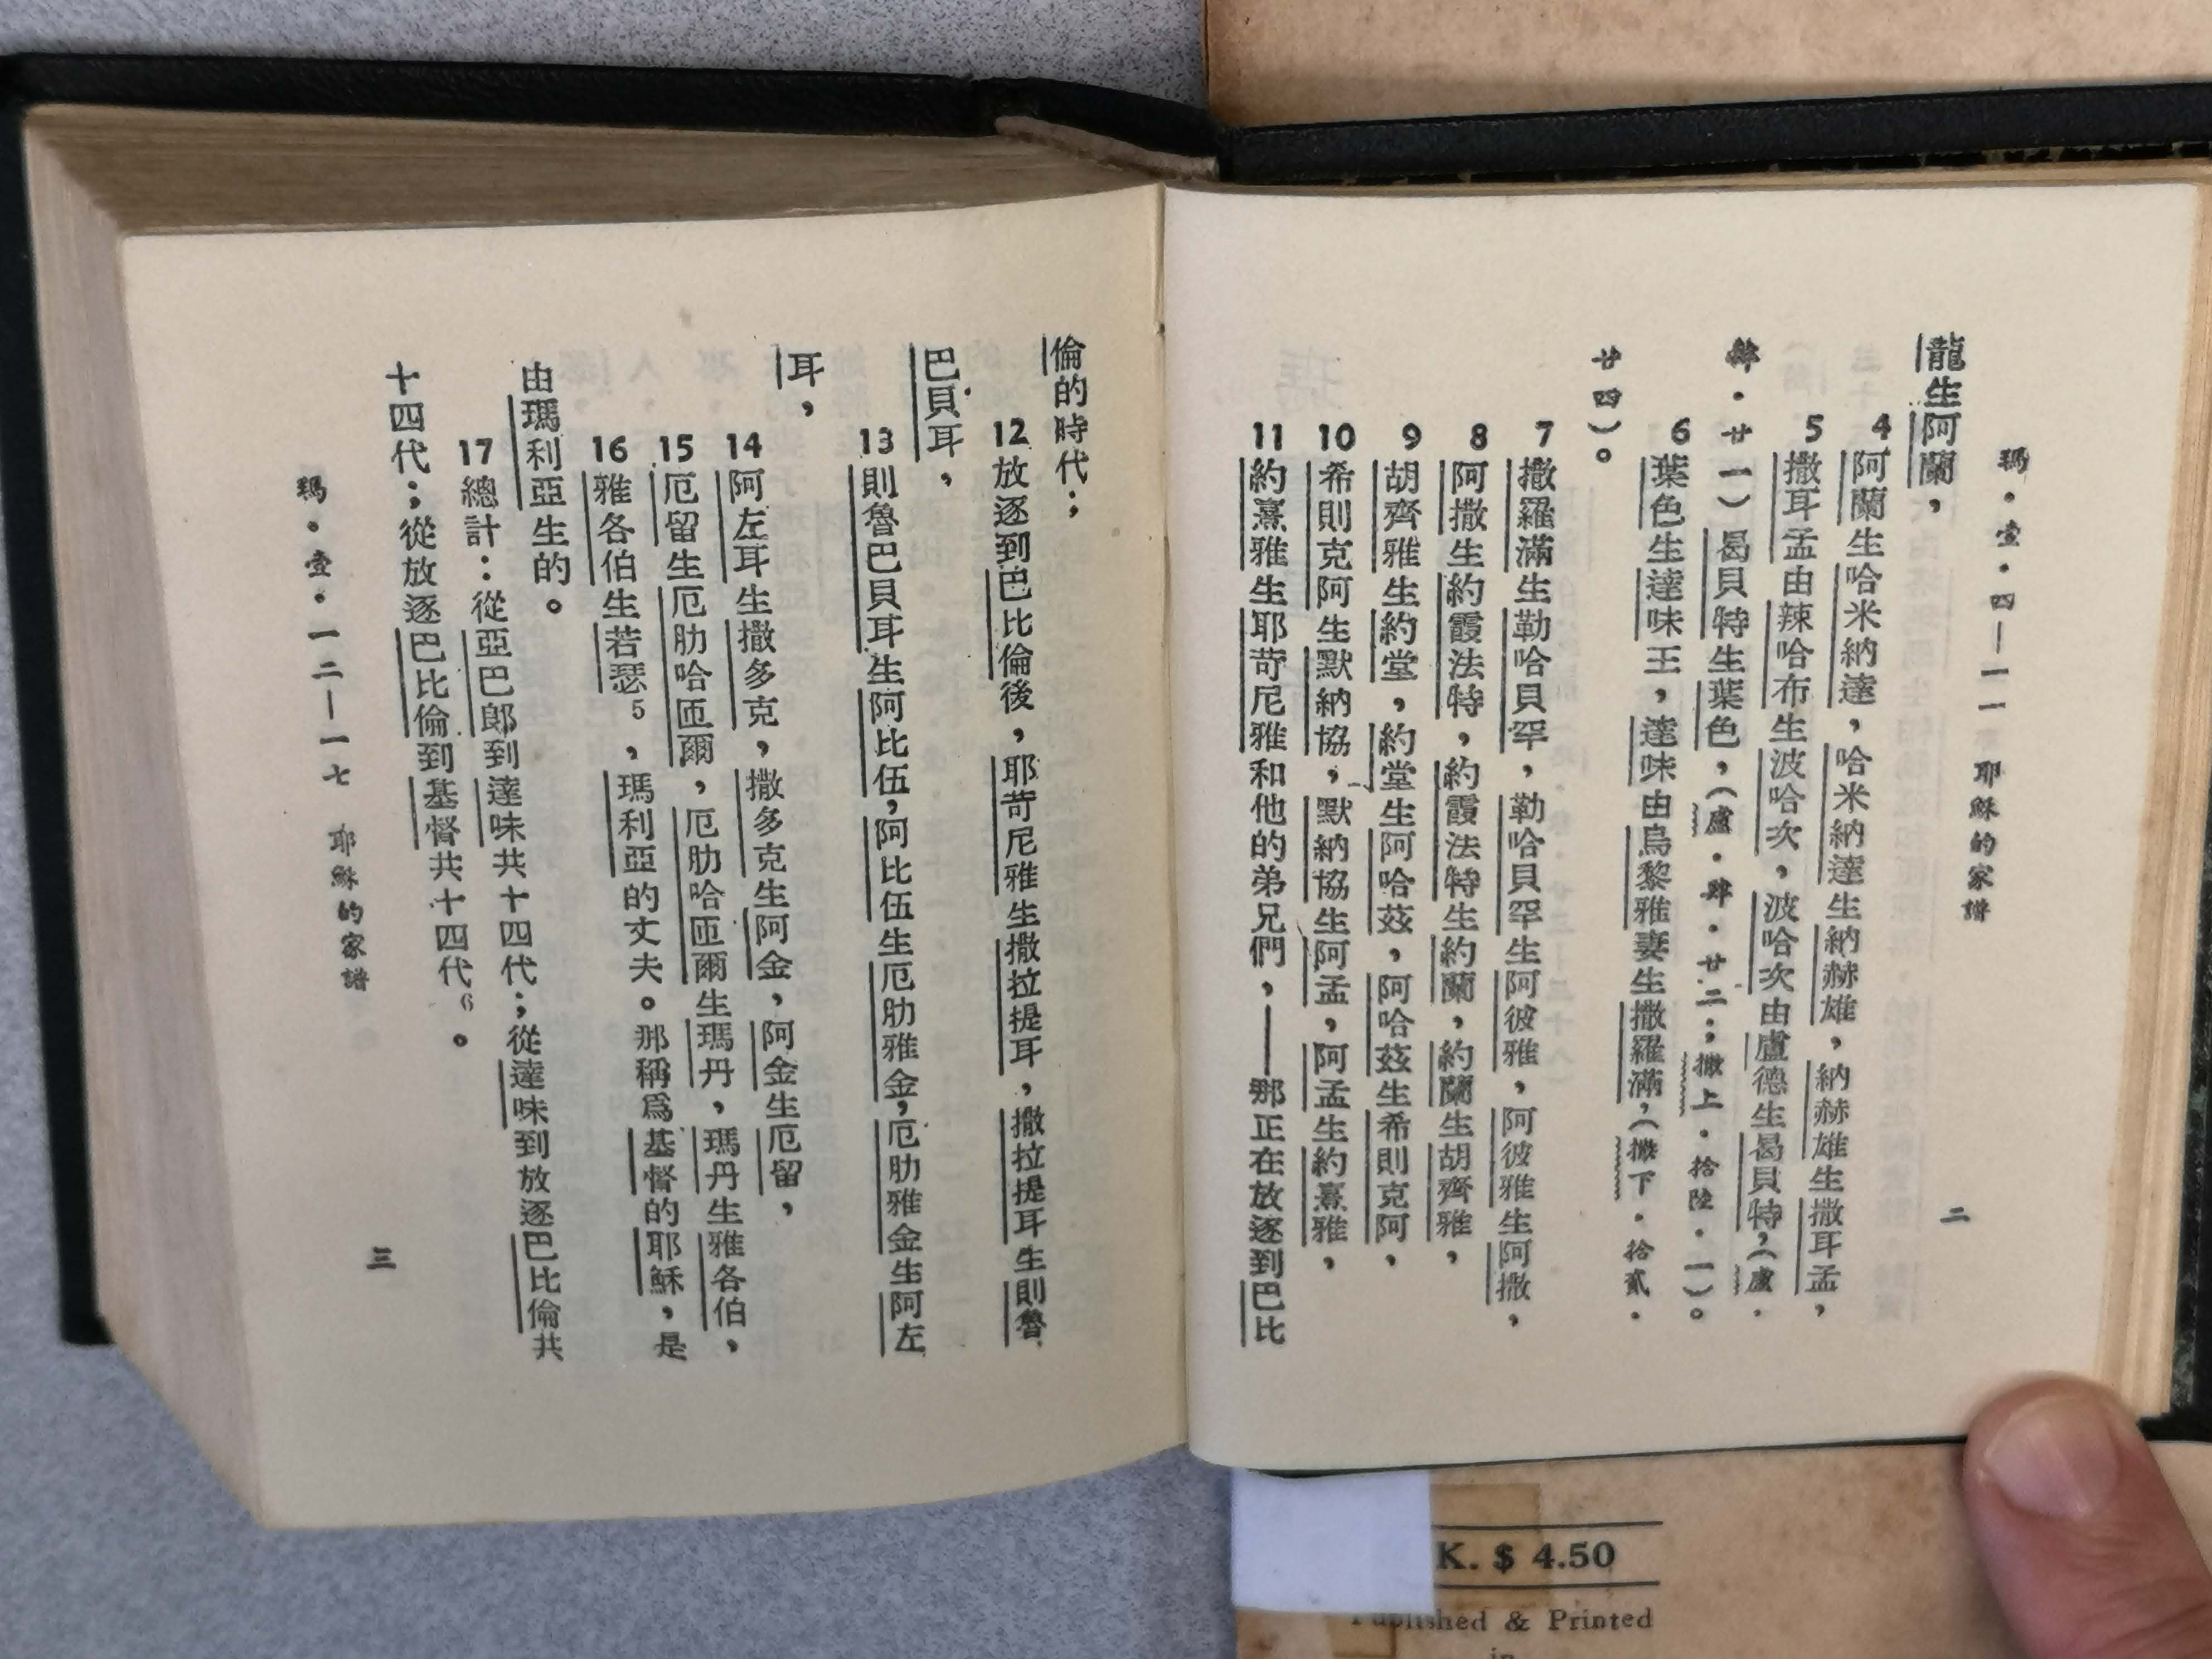 瑪·壹·四—一一 耶穌的家譜 二
龍生阿蘭，
4阿蘭生哈米納達，哈米納達生納赫雄，納赫雄生撒耳孟，
5撒耳孟由辣哈布生波哈次，波哈次由盧德生曷貝特，（盧·
肆·廿一）曷貝特生葉色，（盧·肆·廿二；撒上·拾陸·一）。
6葉色生達味王，達味由烏黎雅妻生撒羅滿，（撒下·拾貳·
廿四）。
7撒羅滿生勒哈貝罕，勒哈貝罕生阿彼雅，阿彼雅生阿撒，
8阿撒生約霞法特，約霞法特生約蘭，約蘭生胡齊雅，
9胡齊雅生約堂，約堂生阿哈茲，阿哈茲生希則克阿，
10希則克阿生默納協，默納協生阿孟，阿孟生約熹雅，
11約熹雅生耶苛尼雅和他的弟兄們，——那正在放逐到巴比
倫的時代；
12放逐到巴比倫後，耶苛尼雅生撒拉提耳，撒拉提耳生則魯
巴貝耳，
13則魯巴貝耳生阿比伍，阿比伍生厄肋雅金，厄肋雅金生阿左
耳，
14阿左耳生撒多克，撒多克生阿金，阿金生厄留，
15厄留生厄肋哈匝爾，厄肋哈匝爾生瑪丹，瑪丹生雅各伯，
16雅各伯生若瑟5，瑪利亞的丈夫。那稱爲基督的耶穌，是
由瑪利亞生的。
17總計：從亞巴郎到達味共十四代；從達味到放逐巴比倫共
十四代；從放逐巴比倫到基督共十四代6。
瑪·壹·一二—一七 耶穌的家譜 三
K. $ 4.50
Published & Printed
in